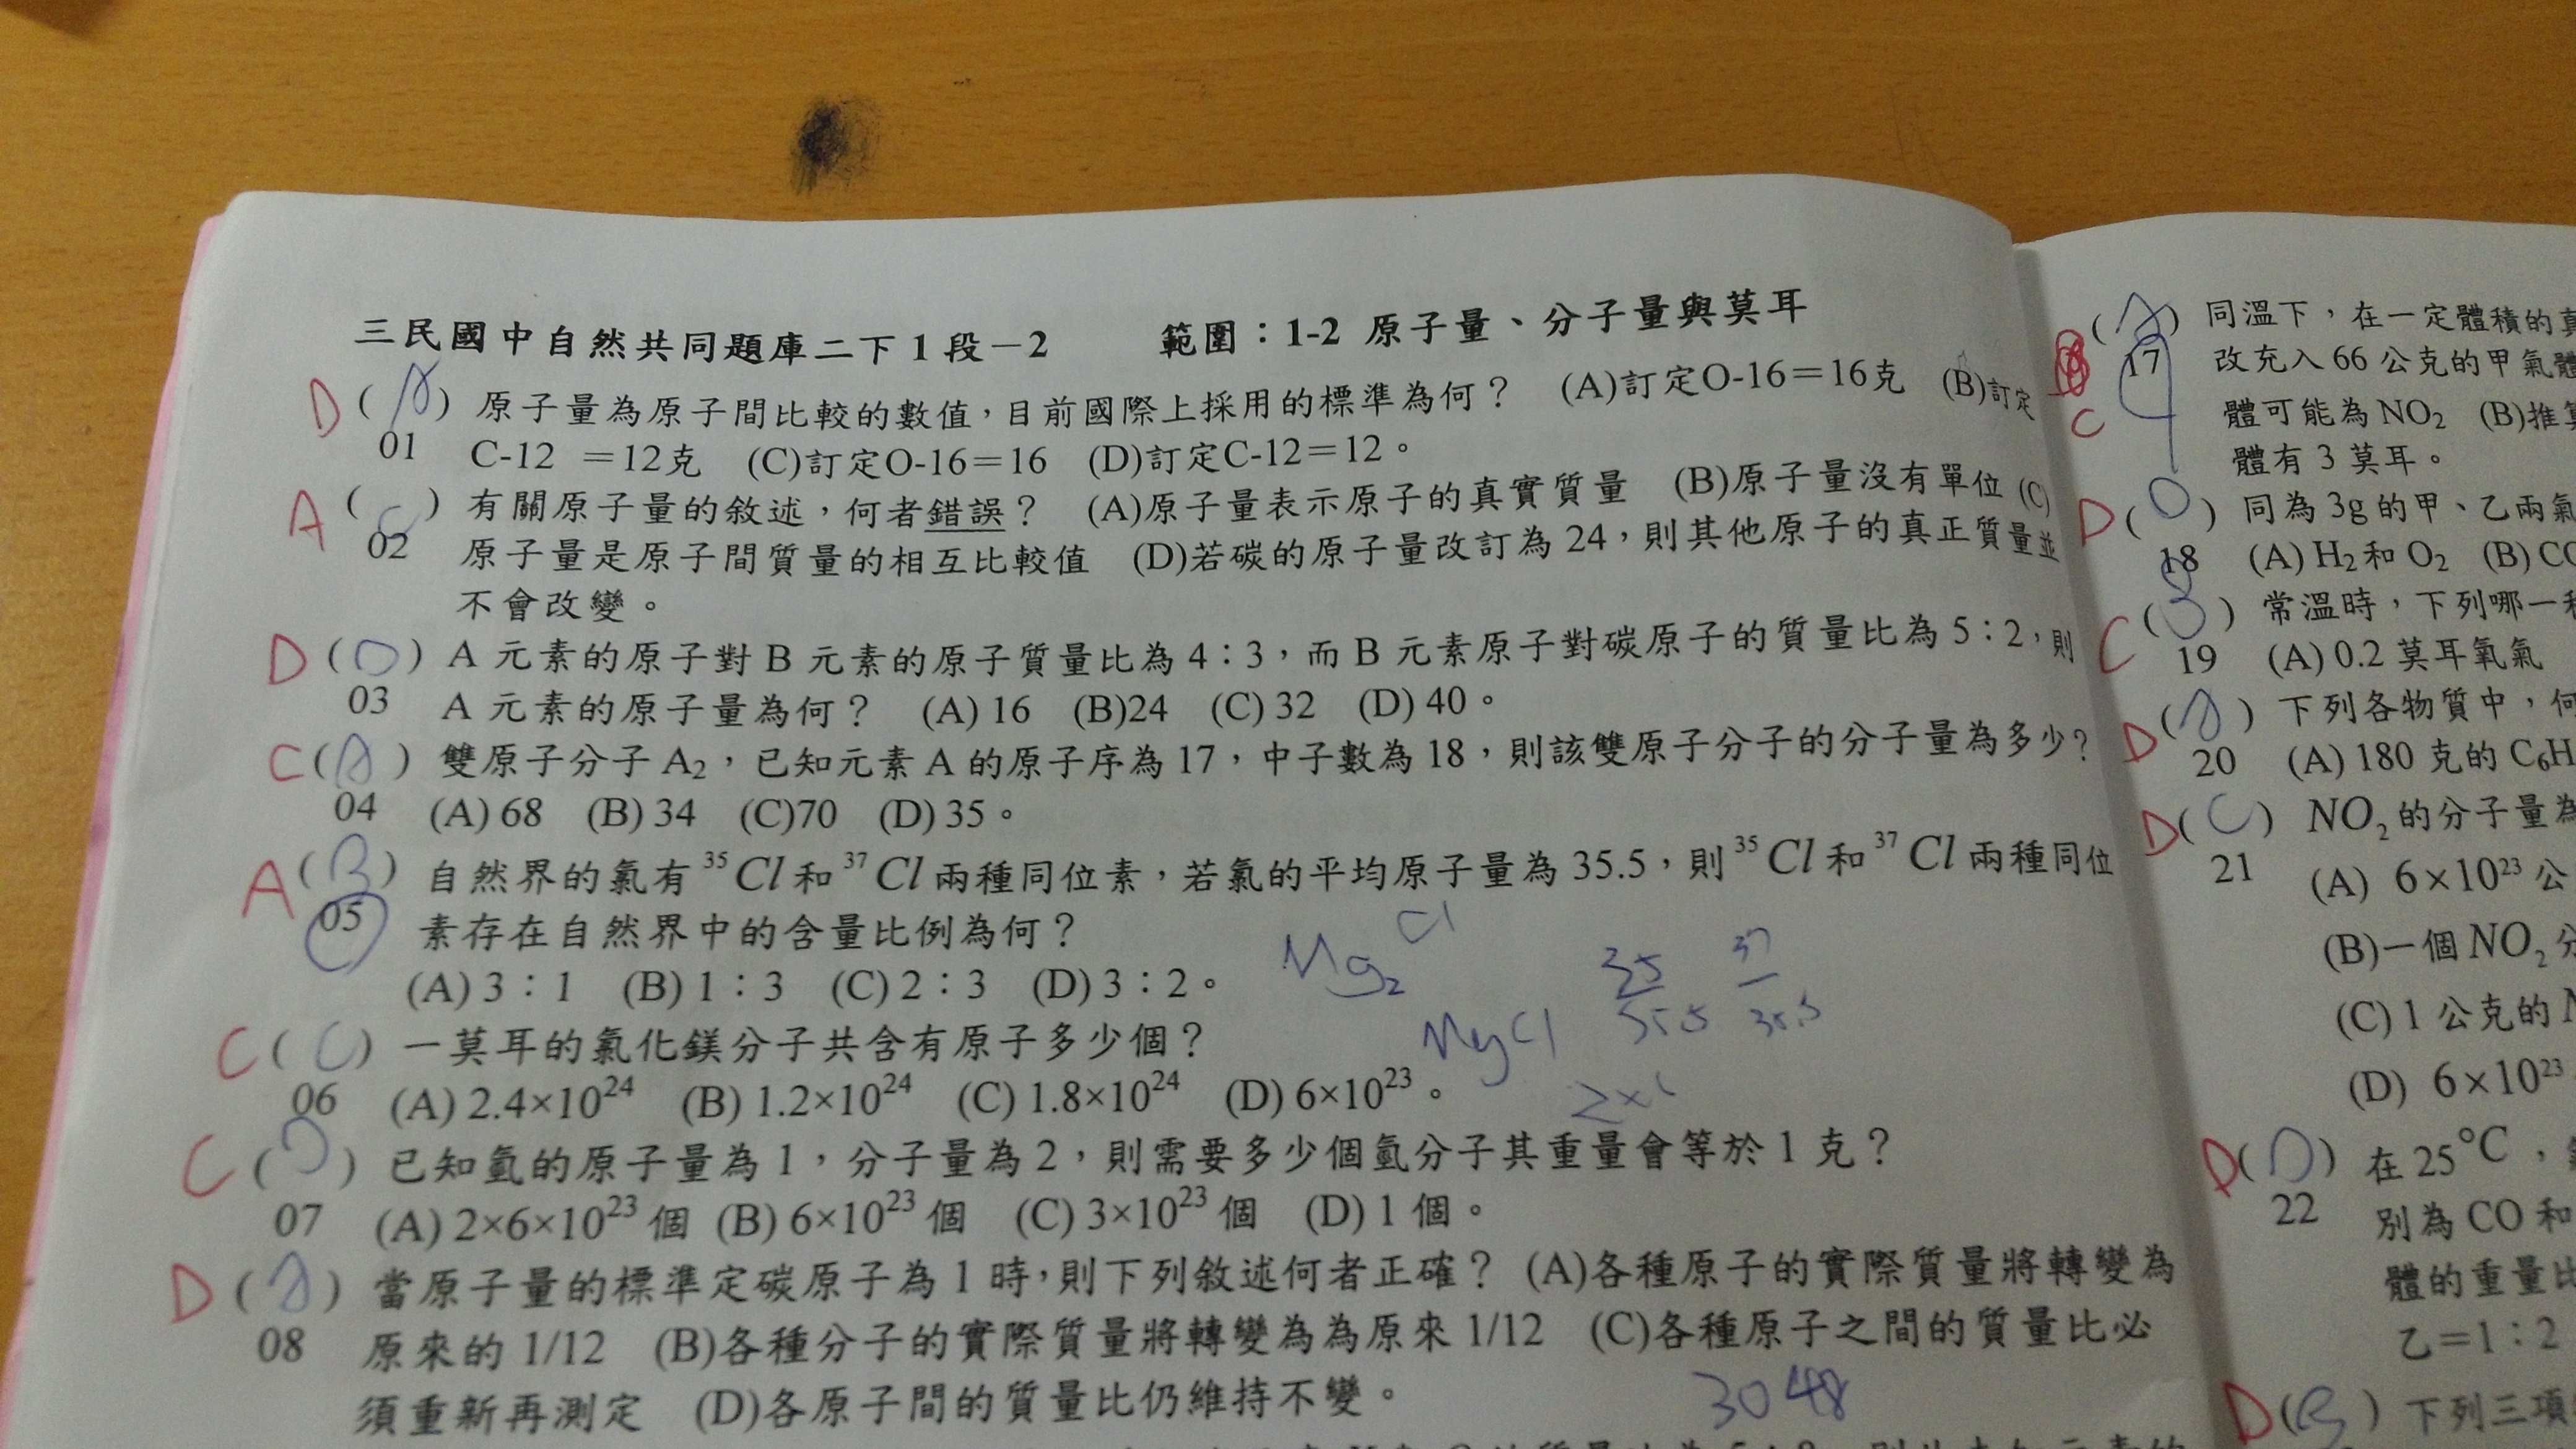 三民國中自然共同題庫二下1段－2 範圍：1-2 原子量、分子量與莫耳
D(A) 原子量為原子間比較的數值，目前國際上採用的標準為何？ (A)訂定O-16＝16克 (B)訂定
01 C-12 ＝12克 (C)訂定O-16＝16 (D)訂定C-12＝12。
A(C) 有關原子量的敘述，何者錯誤？ (A)原子量表示原子的真實質量 (B)原子量沒有單位 (C)
02 原子量是原子間質量的相互比較值 (D)若碳的原子量改訂為24，則其他原子的真正質量並
不會改變。
D(D) A元素的原子對B元素的原子質量比為4：3，而B元素原子對碳原子的質量比為5：2，則
03 A元素的原子量為何？ (A) 16 (B)24 (C) 32 (D) 40。
C(A) 雙原子分子A₂，已知元素A的原子序為17，中子數為18，則該雙原子分子的分子量為多少？
04 (A) 68 (B) 34 (C)70 (D) 35。
A(B) 自然界的氯有³⁵Cl和³⁷Cl兩種同位素，若氯的平均原子量為35.5，則³⁵Cl和³⁷Cl兩種同位
05 素存在自然界中的含量比例為何？
(A) 3：1 (B) 1：3 (C) 2：3 (D) 3：2。
Mg₂ Cl 35 37
35.5 35.5
C(C) 一莫耳的氯化鎂分子共含有原子多少個？ MgCl
06 (A) 2.4×10²⁴ (B) 1.2×10²⁴ (C) 1.8×10²⁴ (D) 6×10²³。
C(D) 已知氫的原子量為1，分子量為2，則需要多少個氫分子其重量會等於1克？
07 (A) 2×6×10²³個 (B) 6×10²³個 (C) 3×10²³個 (D) 1個。
D(A) 當原子量的標準定碳原子為1時，則下列敘述何者正確？ (A)各種原子的實際質量將轉變為
08 原來的1/12 (B)各種分子的實際質量將轉變為為原來1/12 (C)各種原子之間的質量比必
須重新再測定 (D)各原子間的質量比仍維持不變。
30 48
C(A) 同溫下，在一定體積的真
17 改充入66公克的甲氣體
體可能為NO₂ (B)推算
體有3莫耳。
D(D) 同為3g的甲、乙兩氣
18 (A) H₂和O₂ (B) CO
C(B) 常溫時，下列哪一種
19 (A) 0.2莫耳氧氣
D(A) 下列各物質中，何
20 (A) 180克的C₆H
D(C) NO₂的分子量為
21 (A) 6×10²³公
(B)一個NO₂分
(C) 1公克的N
(D) 6×10²³
D(D) 在25℃，
22 別為CO和
體的重量比
乙＝1：2
D(B) 下列三項